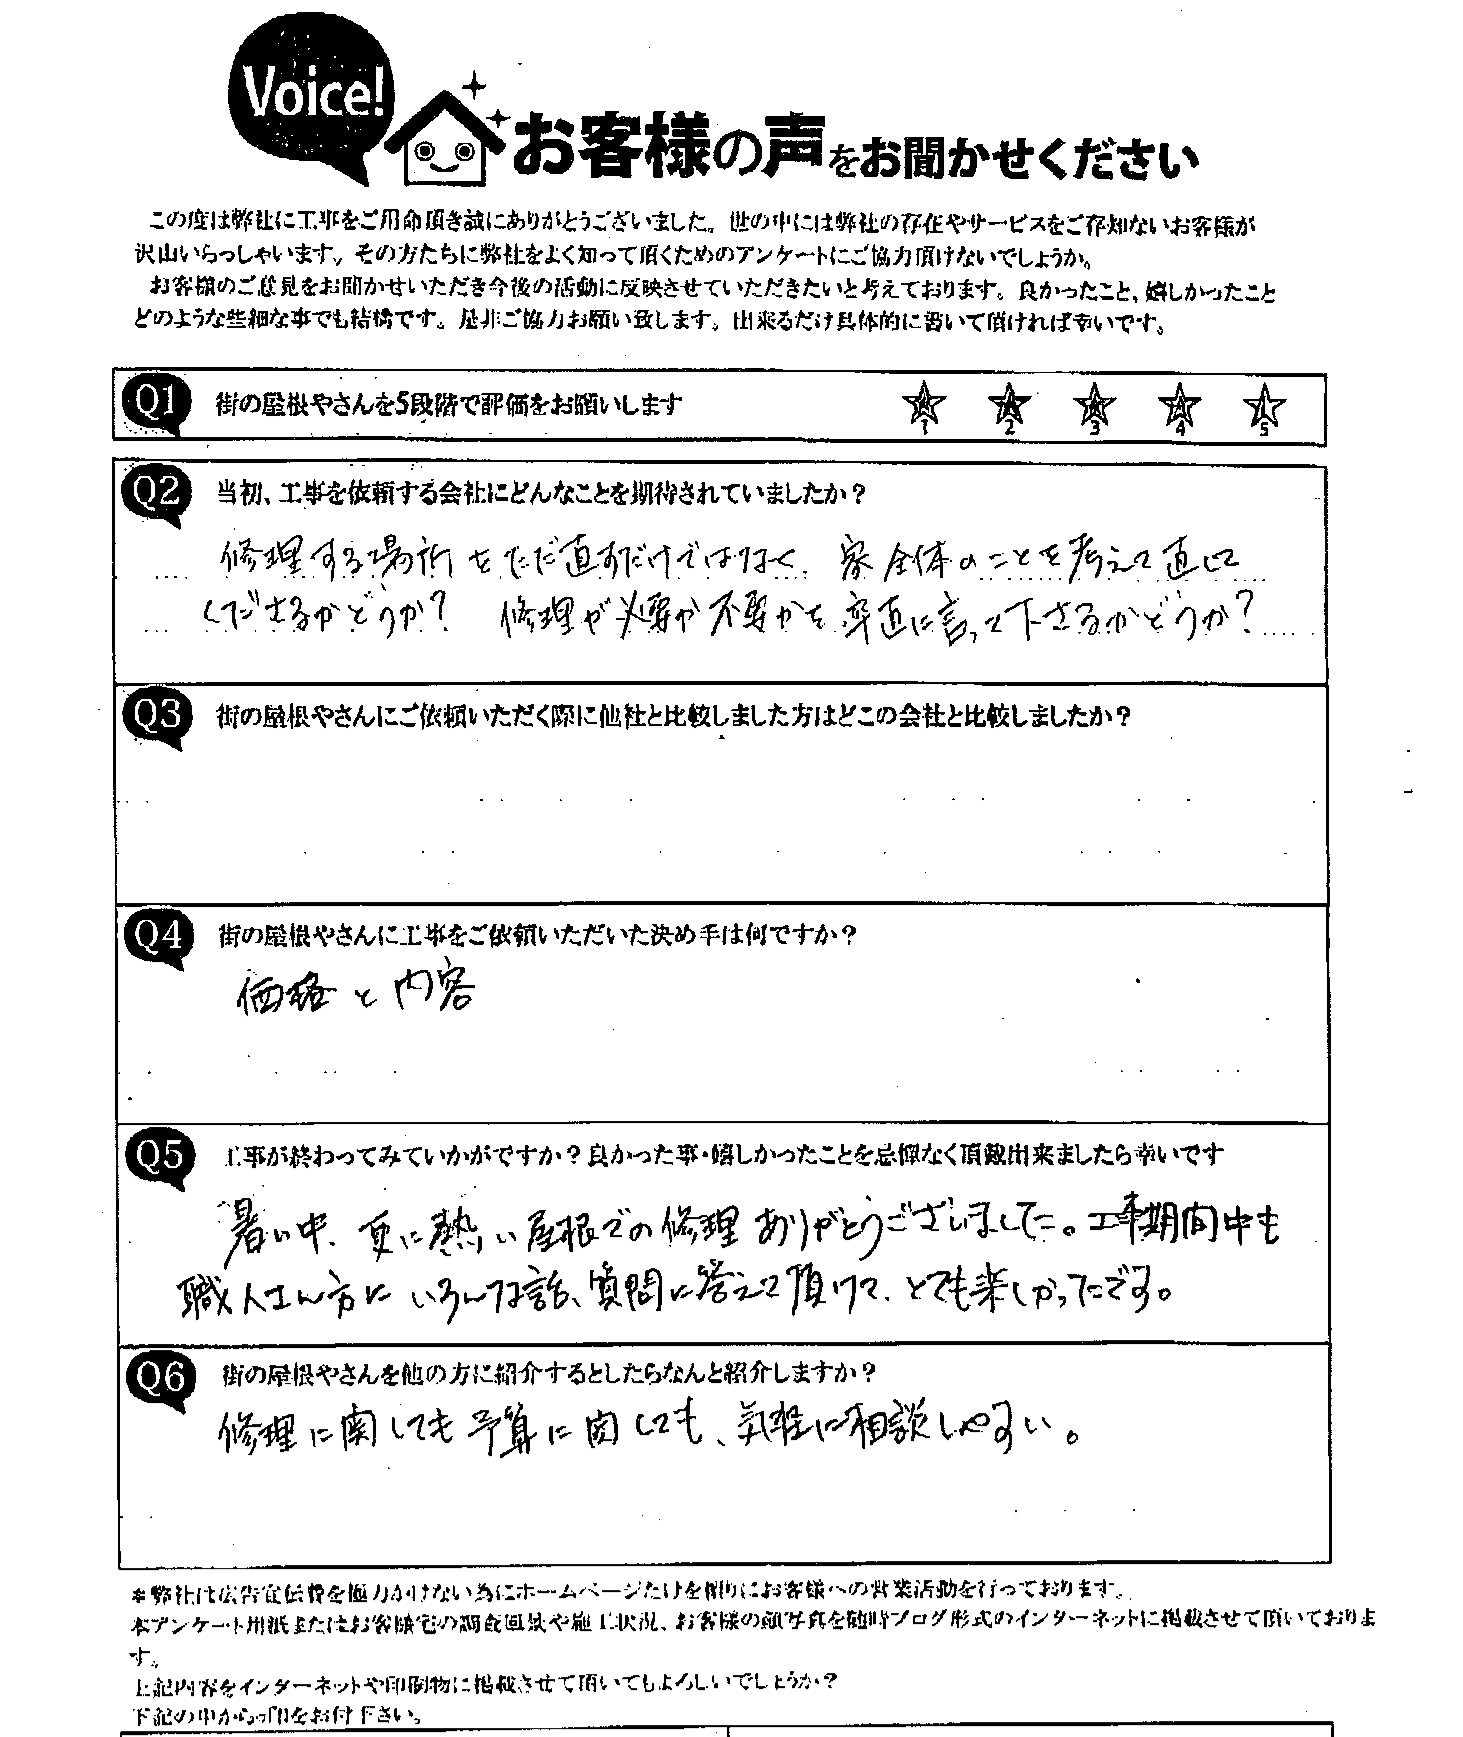 Voice!
お客様の声をお聞かせください
この度は弊社に工事をご用命頂き誠にありがとうございました。世の中には弊社の存在やサービスをご存知ないお客様が
沢山いらっしゃいます。その方たちに弊社をよく知って頂くためのアンケートにご協力頂けないでしょうか。
お客様のご意見をお聞かせいただき今後の活動に反映させていただきたいと考えております。良かったこと、嬉しかったこと
どのような些細な事でも結構です。是非ご協力お願い致します。出来るだけ具体的に書いて頂ければ幸いです。
Q1 街の屋根やさんを5段階で評価をお願いします 1 2 3 4 5
Q2 当初、工事を依頼する会社にどんなことを期待されていましたか？
修理する場所をただ直すだけではなく、家全体のことを考えて直して
くださるかどうか？ 修理が必要か不要かを率直に言って下さるかどうか？
Q3 街の屋根やさんにご依頼いただく際に他社と比較しました方はどこの会社と比較しましたか？
Q4 街の屋根やさんに工事をご依頼いただいた決め手は何ですか？
価格と内容
Q5 工事が終わってみていかがですか？良かった事・嬉しかったことを忌憚なく頂戴出来ましたら幸いです
暑い中、更に熱い屋根での修理ありがとうございました。工事期間中も
職人さん方にいろんな話、質問に答えて頂けて、とても楽しかったです。
Q6 街の屋根やさんを他の方に紹介するとしたらなんと紹介しますか？
修理に関しても予算に関しても、気軽に相談しやすい。
＊弊社は広告宣伝費を極力かけない為にホームページだけを頼りにお客様への営業活動を行っております。
本アンケート用紙またはお客様宅の調査風景や施工状況、お客様の顔写真を随時ブログ形式のインターネットに掲載させて頂いておりま
す。
上記内容をインターネットや印刷物に掲載させて頂いてもよろしいでしょうか？
下記の中から○印をお付下さい。